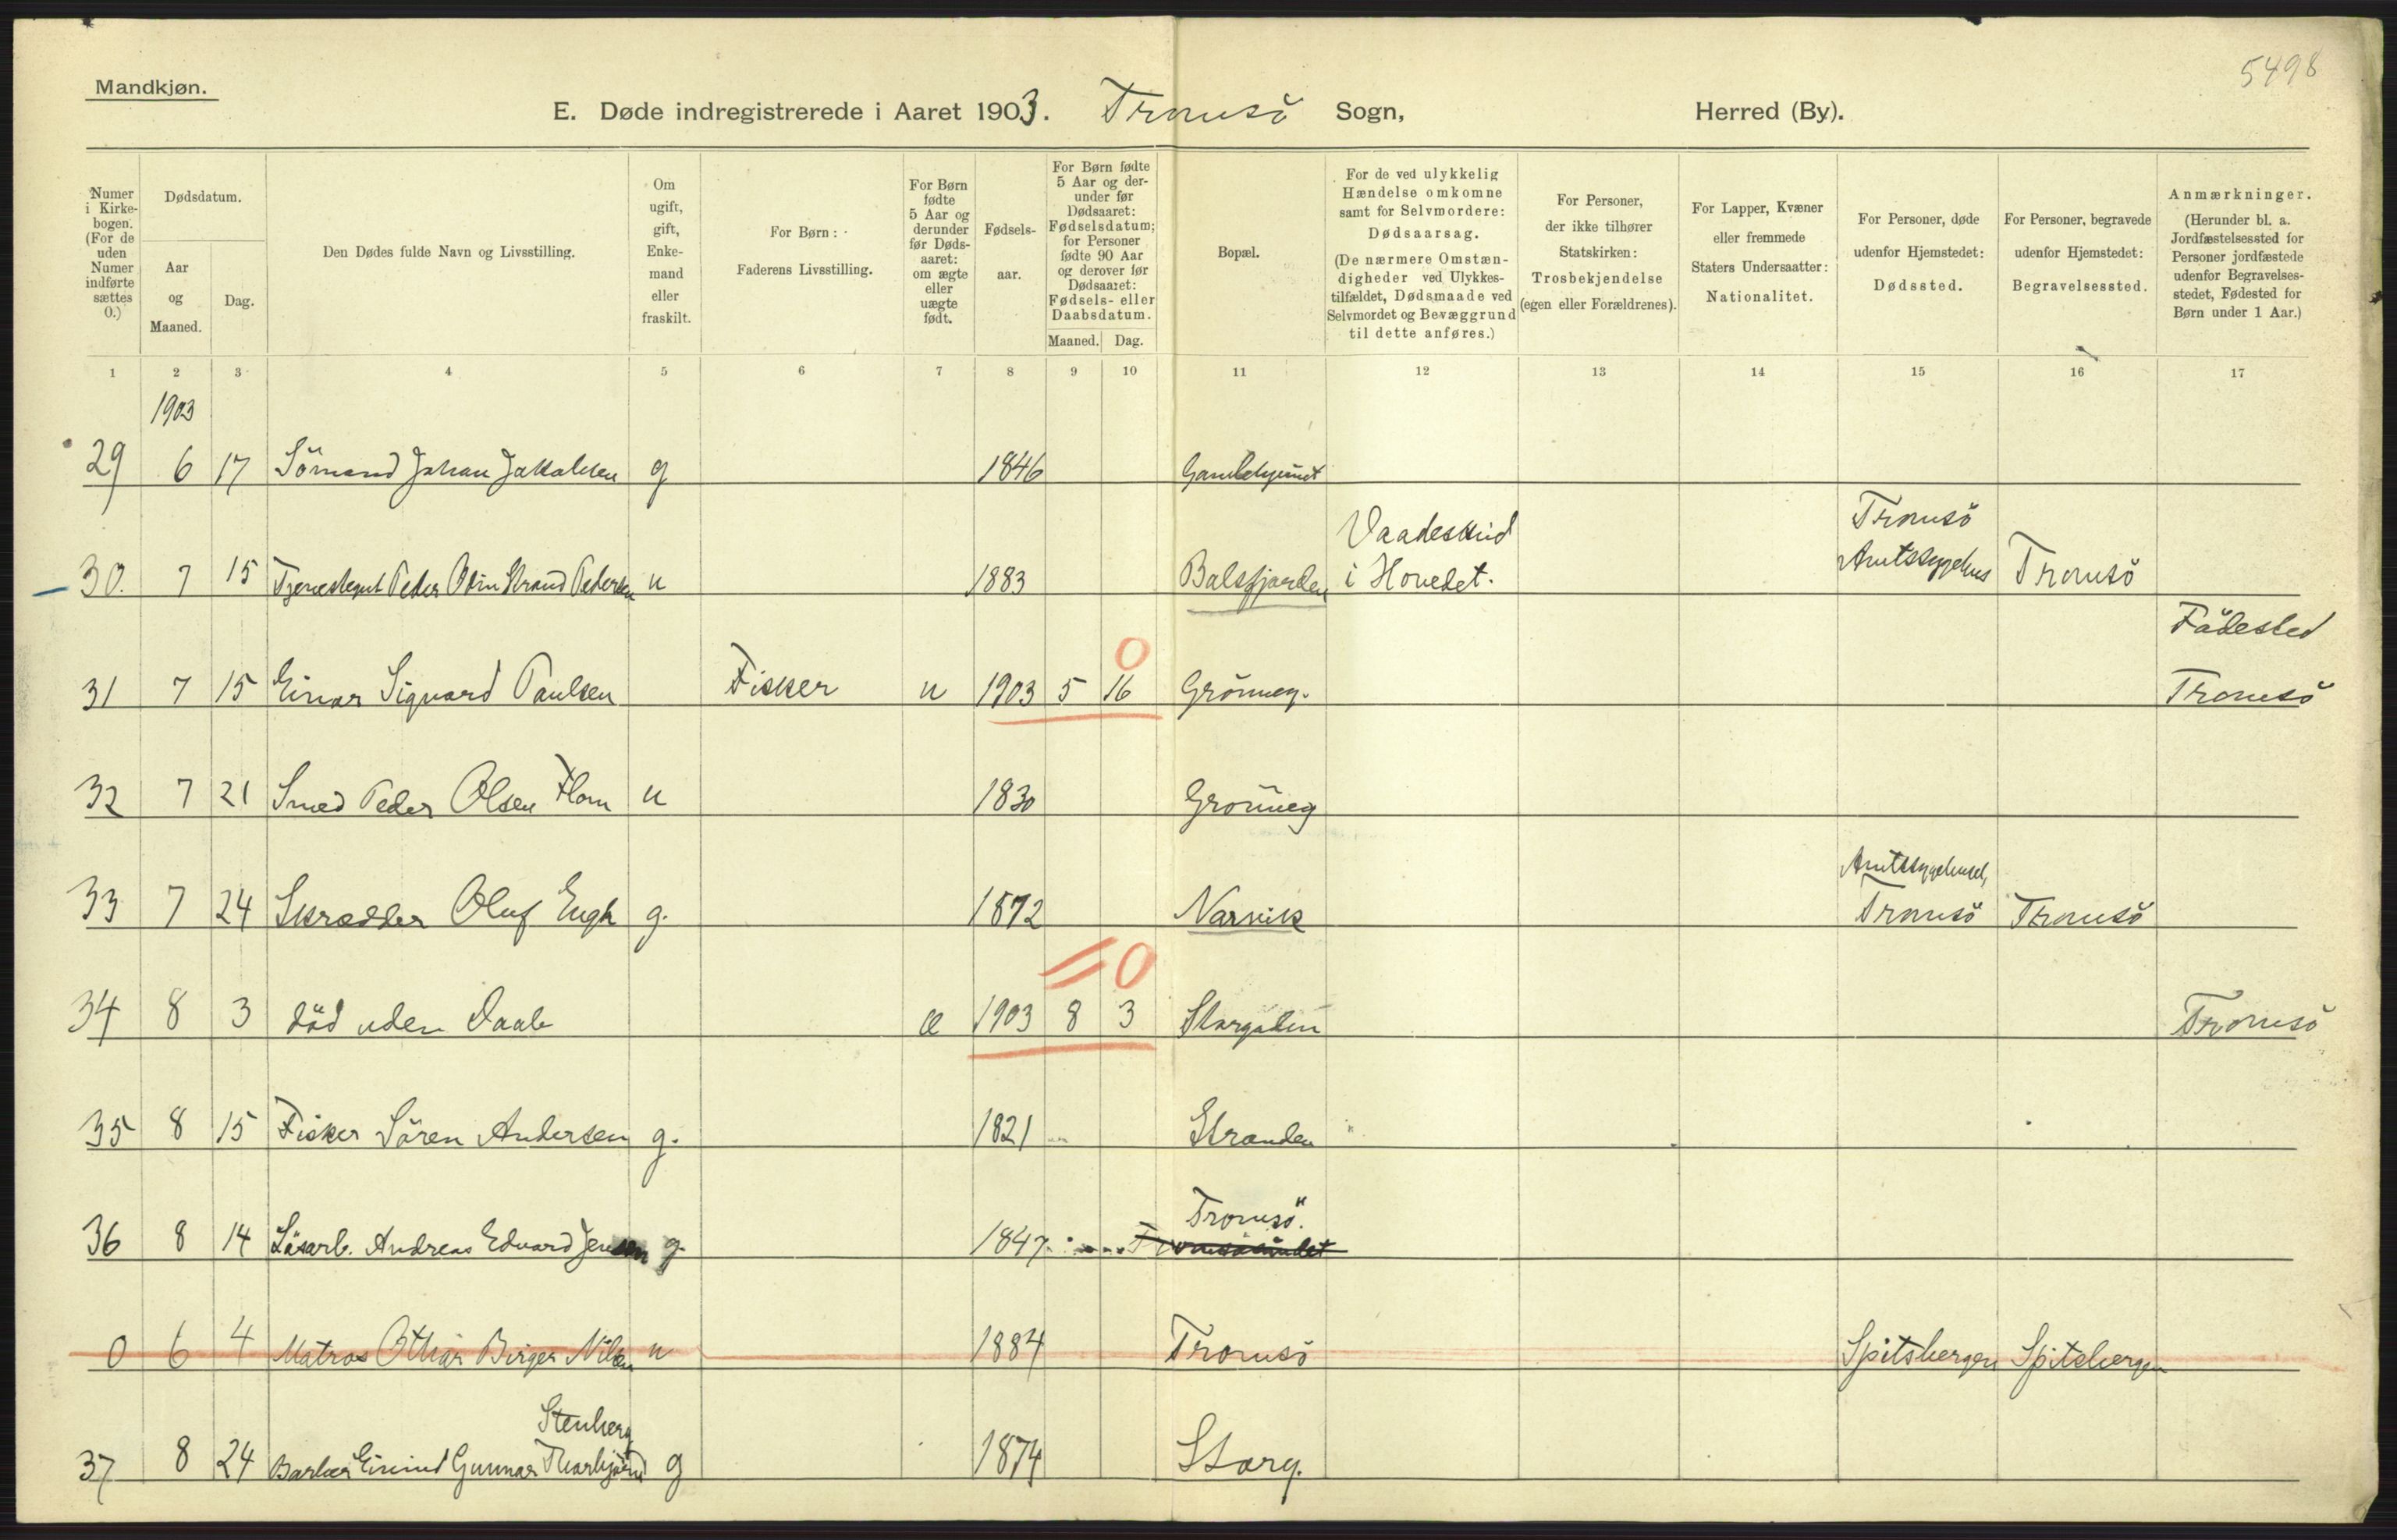 5498
Mandkjøn.
E. Døde indregistrerede i Aaret 1903. Tromsö Sogn, Herred (By).
Numer i Kirke-bogen. (For de uden Numer indførte sættes 0.)
Dødsdatum.
Aar og Maaned.
Dag.
Den Dødes fulde Navn og Livsstilling.
Om ugift, gift, Enke-mand eller fraskilt.
For Børn:
Faderens Livsstilling.
For Børn fødte 5 Aar og derunder før Døds-aaret: om ægte eller uægte født.
Fødsels-aar.
For Børn fødte 5 Aar og der-under før Dødsaaret: Fødselsdatum; for Personer fødte 90 Aar og derover før Dødsaaret: Fødsels- eller Daabsdatum.
Maaned. Dag.
Bopæl.
For de ved ulykkelig Hændelse omkomne samt for Selvmordere: Dødsaarsag. (De nærmere Omstæn-digheder ved Ulykkes-tilfældet, Dødsmaade ved Selvmordet og Bevæggrund til dette anføres.)
For Personer, der ikke tilhører Statskirken: Trosbekjendelse (egen eller Forældrenes).
For Lapper, Kvæner eller fremmede Staters Undersaatter: Nationalitet.
For Personer, døde udenfor Hjemstedet: Dødssted.
For Personer, begravede udenfor Hjemstedet: Begravelsessted.
Anmærkninger. (Herunder bl. a. Jordfæstelsessted for Personer jordfæstede udenfor Begravelses-stedet, Fødested for Børn under 1 Aar.)
1 2 3 4 5 6 7 8 9 10 11 12 13 14 15 16 17
1903
29 6 17 Sömand Johan Jakobsen g 1846
Vaadeskud Tromsö
30. 7 15 Tjenestegut Peder Odin Strand Pedersen u 1883 Balsfjorden i Hovedet. Amtssygehus Tromsö
Födested
0
31 7 15 Einar Sigvard Paulsen Fisker u 1903 5 16 Grönneg. Tromsö
32 7 21 Smed Peder Olsen Flom u 1830 Grönneg
Amtssygehuset,
33 7 24 Skrædder Oluf Engh g. 1872 Narvik Tromsö Tromsö
0
34 8 3 död uden Daab æ 1903 8 3 Storgaden Tromsö
35 8 15 Fisker Sören Andersen g. 1821 Stranden
Tromsö.
36 8 14 Lösarb. Andreas Edvard Jensen g. 1847 Tromsösundet
0 6 4 Matros Othar Birger Nilsen u 1884 Tromsö Spitsbergen Spitsbergen
Stenberg
37 8 24 Barber Eivind Gunnar Thorbjörnd g 1874 Storg.